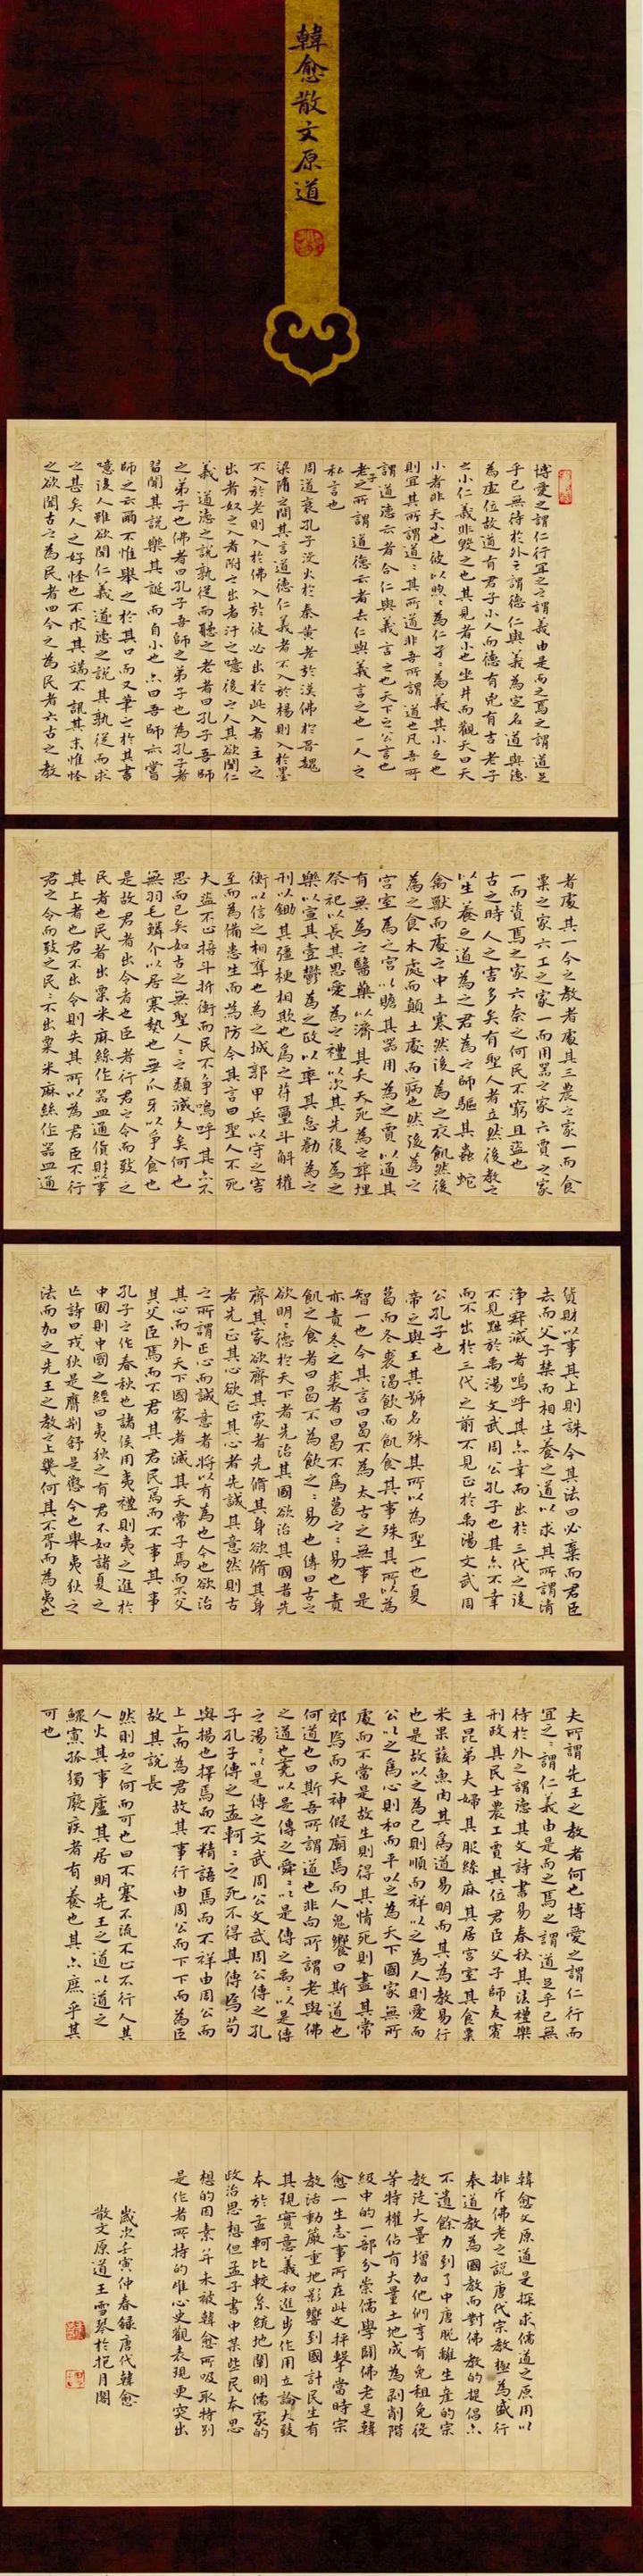 韓愈散文原道
博愛之謂仁行宜之之謂義由是而之焉之謂道足
乎已無待於外之謂德仁與義為定名道與德
為虛位故道有君子小人而德有兇有吉老子
之小仁義非毀之也其見者小也坐井而觀天曰天
小者非天小也彼以煦〻為仁孑〻為義其小之也
則宜其所謂道〻其所道非吾所謂道也凡吾所
謂道德云者合仁與義言之也天下之公言也
老子之所謂道德云者去仁與義言之也一人之
私言也
周道衰孔子沒火於秦黃老於漢佛於晉魏
梁隋之間其言道德仁義者不入於楊則入於墨
不入於老則入於佛入於彼必出於此入者主之
出者奴之入者附之出者汙之噫後之人其欲聞仁
義道德之說孰從而聽之老者曰孔子吾師
之弟子也佛者曰孔子吾師之弟子也為孔子者
習聞其說樂其誕而自小也亦曰吾師亦嘗
師之云爾不惟舉之於其口而又筆之於其書
噫後人雖欲聞仁義道德之說其孰從而求
之甚矣人之好怪也不求其端不訊其末惟怪
之欲聞古之為民者四今之為民者六古之教
者處其一今之教者處其三農之家一而食
粟之家六工之家一而用器之家六賈之家
一而資焉之家六奈之何民不窮且盜也
古之時人之害多矣有聖人者立然後教之
以生養之道為之君為之師驅其蟲蛇
禽獸而處之中土寒然後為之衣飢然後
為之食木處而顛土處而病也然後為之
宮室為之宮以贍其器用為之賈以通其
有無為之醫藥以濟其夭死為之葬埋
祭祀以長其恩愛為之禮以次其先後為之
樂以宣其壹鬱為之政以率其怠勸為之
刑以鋤其彊梗相欺也為之符璽斗斛權
衡以信之相奪也為之城郭甲兵以守之害
至而為備患生而為防今其言曰聖人不死
大盜不止掊斗折衡而民不爭嗚呼其亦不
思而已矣如古之無聖人〻之類滅久矣何也
無羽毛鱗介以居寒熱也無爪牙以爭食也
是故君者出令者也臣者行君之令而致之
民者也民者出粟米麻絲作器皿通貨財以事
其上者也君不出令則失其所以為君臣不行
君之令而致之民〻不出粟米麻絲作器皿通
貨財以事其上則誅今其法曰必棄而君臣
去而父子禁而相生養之道以求其所謂清
淨寂滅者嗚呼其亦幸而出於三代之後
不見黜於禹湯文武周公孔子也其亦不幸
而不出於三代之前不見正於禹湯文武周
公孔子也
帝之與王其號名殊其所以為聖一也夏
葛而冬裘渴飲而飢食其事殊其所以為
智一也今其言曰曷不為太古之無事是
亦責冬之裘者曰曷不為葛之〻易也責
飢之食者曰曷不為飲之〻易也傳曰古之
欲明〻德於天下者先治其國欲治其國者先
齊其家欲齊其家者先脩其身欲脩其身
者先正其心欲正其心者先誠其意然則古
之所謂正心而誠意者將以有為也今也欲治
其心而外天下國家者滅其天常子焉而不父
其父臣焉而不君其君民焉而不事其事
孔子之作春秋也諸侯用夷禮則夷之進於
中國則中國之經曰夷狄之有君不如諸夏之
亡詩曰戎狄是膺荊舒是懲今也舉夷狄之
法而加之先王之教之上幾何其不胥而為夷也
夫所謂先王之教者何也博愛之謂仁行而
宜之〻謂仁義由是而之焉之謂道足乎已無
待於外之謂德其文詩書易春秋其法禮樂
刑政其民士農工賈其位君臣父子師友賓
主昆弟夫婦其服絲麻其居宮室其食粟
米果蔬魚肉其為道易明而其為教易行
也是故以之為已則順而祥以之為人則愛而
公以之為心則和而平以之為天下國家無所
處而不當是故生則得其情死則盡其常
郊焉而天神假廟焉而人鬼饗曰斯道也
何道也曰斯吾所謂道也非向所謂老與佛
之道也堯以是傳之舜〻以是傳之禹〻以是傳
之湯〻以是傳之文武周公文武周公傳之孔
子孔子傳之孟軻〻之死不得其傳焉荀
與揚也擇焉而不精語焉而不祥由周公而
上上而為君故其事行由周公而下下而為臣
故其說長
然則如之何而可也曰不塞不流不止不行人其
人火其事廬其居明先王之道以道之
鰥寡孤獨廢疾者有養也其亦庶乎其
可也
韓愈文原道是探求儒道之原用以
排斥佛老之說唐代宗教極為盛行
奉道教為國教而對佛教的提倡亦
不遺餘力到了中唐脫離生產的宗
教徒大量增加他們享有免租免役
等特權佔有大量土地成為剥削階
級中的一部分崇儒學闢佛老是韓
愈一生志事所在此文抨擊當時宗
教活動嚴重地影響到國計民生有
其現實意義和進步作用立論大致
本於孟軻比較系統地闡明儒家的
政治思想但孟子書中某些民本思
想的因素并未被韓愈所吸取特別
是作者所持的唯心史觀表現更突出
歲次壬寅仲春録唐代韓愈
散文原道王雪琴於抱月閣